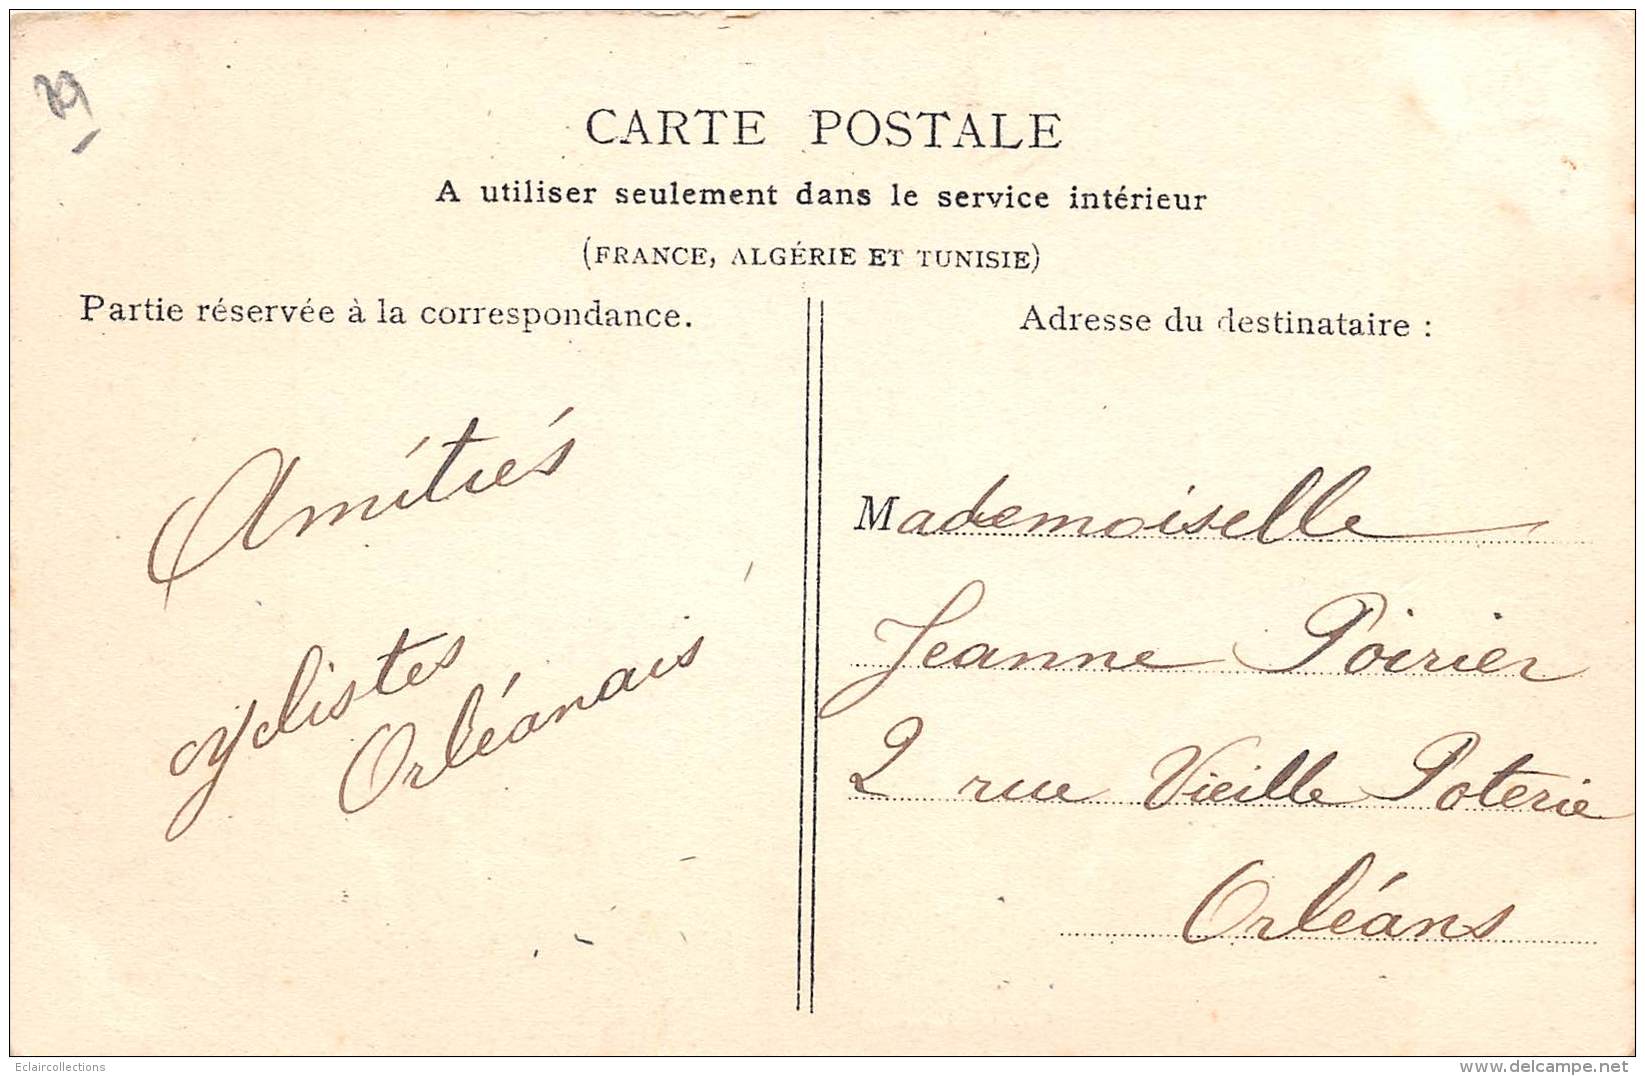 CARTE POSTALE
A utiliser seulement dans le service intérieur
(FRANCE, ALGÉRIE ET TUNISIE)
Partie réservée à la correspondance.
Amitiés
cyclistes
Orléanais
Adresse du destinataire :
Mademoiselle
Jeanne Poirier
2 rue Vieille Poterie
Orléans
Eclaircollections
www.delcampe.net